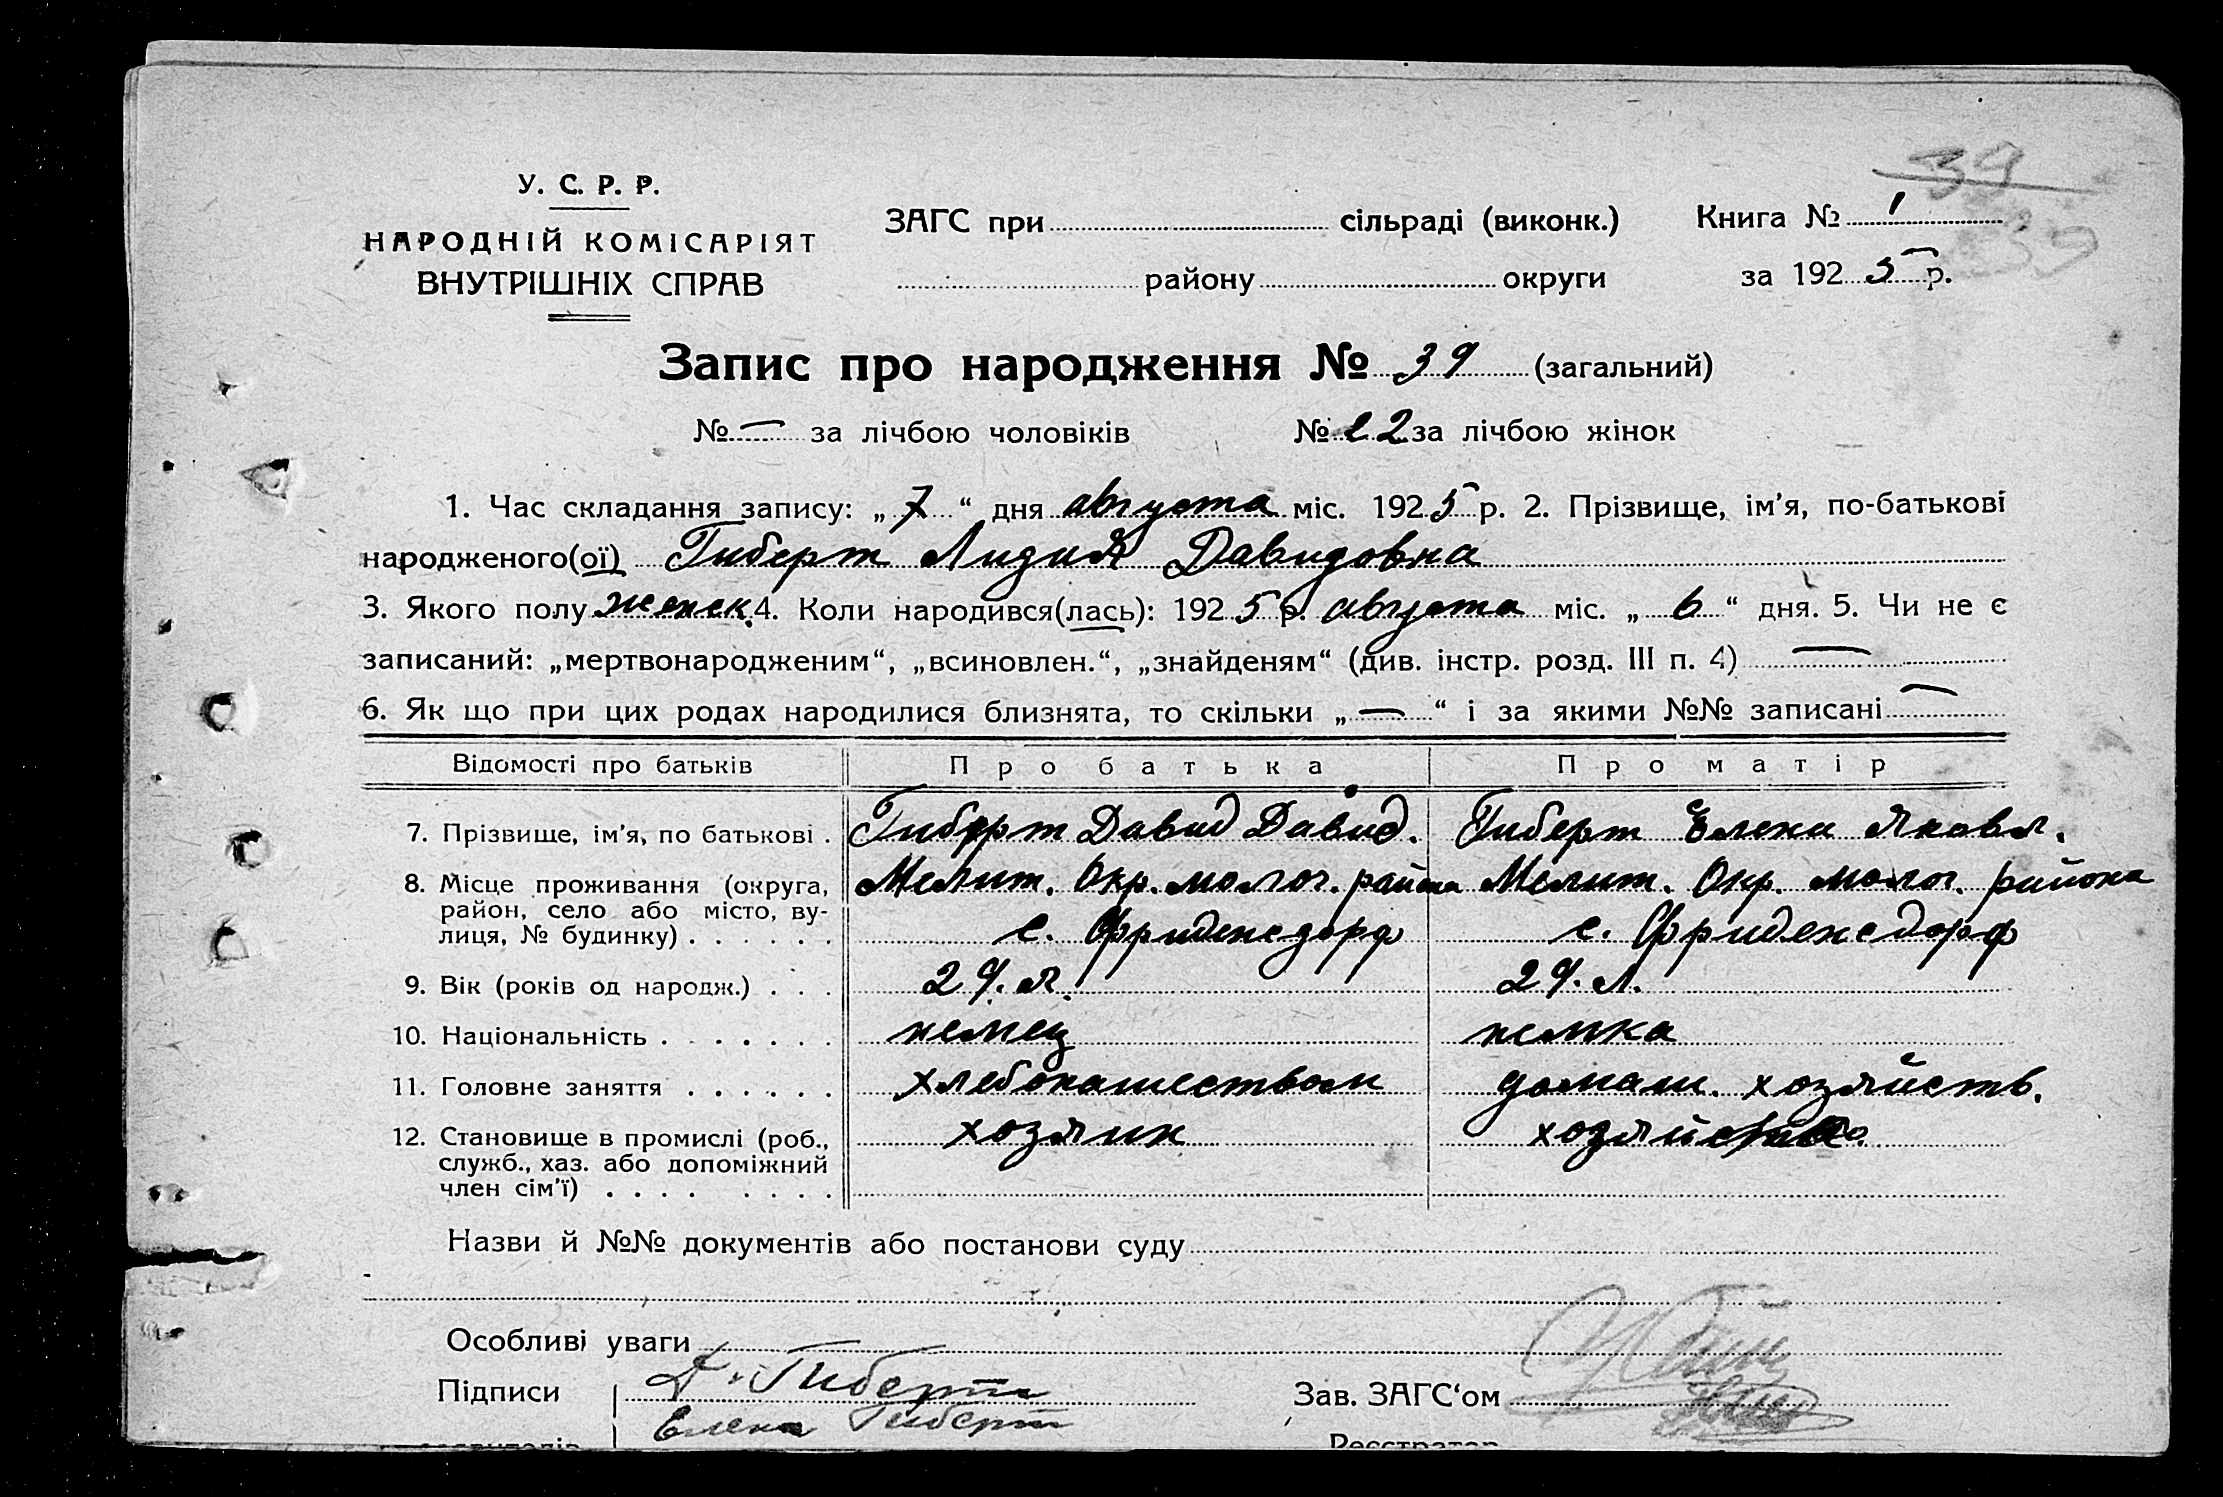 39
39
У. С. Р. Р.
НАРОДНІЙ КОМІСАРІЯТ
ВНУТРІШНІХ СПРАВ
ЗАГС при сільраді (виконк.) Книга № 1
району округи за 1925 р.
Запис про народження № 39 (загальний)
№ — за лічбою чоловіків № 22 за лічбою жінок
1. Час складання запису: „7“ дня августа міс. 1925 р. 2. Прізвище, ім’я, по-батькові
народженого(ої) Гиберт Лидия Давидовна
3. Якого полу женск. 4. Коли народився(лась): 1925 р. августа міс. „6“ дня. 5. Чи не є
записаний: „мертвонародженим“, „всиновлен.“, „знайденям“ (див. інстр. розд. III п. 4) —
6. Як що при цих родах народилися близнята, то скільки „—“ і за якими №№ записані —
Відомості про батьків Про батька Про матір
7. Прізвище, ім’я, по батькові . Гиберт Давид Давид. Гиберт Елена Яковл.
8. Місце проживання (округа, Мелит. Окр. молоч. района Мелит. Окр. молоч. района
район, село або місто, ву-
лиця, № будинку) . . . . . . с. Фриденсдорф с. Фриденсдорф
9. Вік (років од народж.) . . . 29. л. 29. л.
10. Національність . . . . . . . немец немка
11. Головне заняття . . . . . . хлебопашеством домаш. хозяйств.
12. Становище в промислі (роб., хозяин хозяйство
служб., хаз. або допоміжний
член сім’ї) . . . . . . . .
Назви й №№ документів або постанови суду
Особливі уваги
Підписи Д. Гиберт Зав. ЗАГС‘ом
Елена Гиберт
Реєстратор